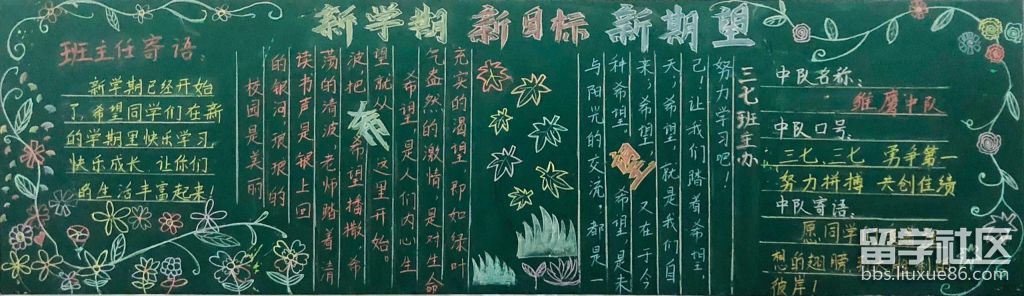 新学期 新目标 新期望
班主任寄语:
新学期已经开始
了,希望同学们在新
的学期里快乐学习,
快乐成长 让你们
的生活丰富起来!
校园是美丽
的银河 琅琅的
读书声是碧上回
荡的清波,老师踏着清
波,把希望播撒,希
望就从这里开始。
希望,是人们内心生
气盎然的激情,是对生命
充实的渴望 即如绿叶
与阳光的交流;都是一
种希望。希望,是未
来,希望 又在于今
天,希望,就是我们自
己!让我们踏着希望,
努力学习吧!
希
望
三七班主办
中队名称:
雏鹰中队
中队口号:
三七、三七 勇争第一
努力拼搏 共创佳绩
中队寄语:
愿同学
想的翅膀
彼岸!
留学社区
bbs.liuxue86.com